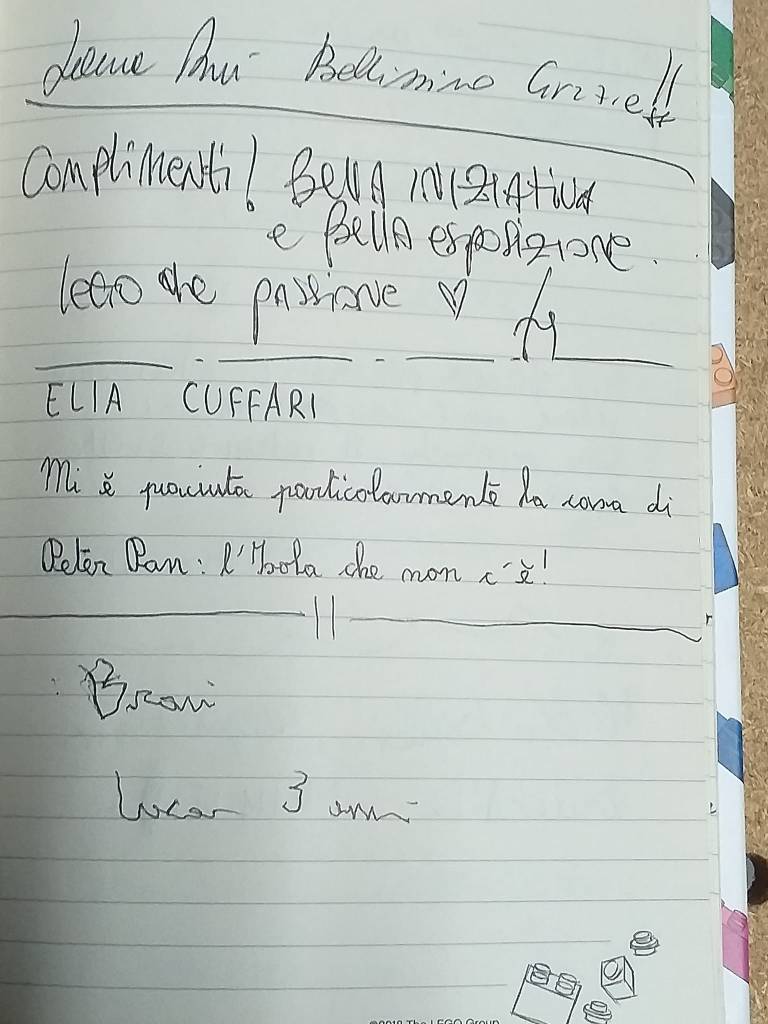 Bellissimo Grazie!!
Complimenti! BELLA INIZIATIVA
e BELLA esposizione.
lego che passione ♡
ELIA CUFFARI
Mi è piaciuta particolarmente la casa di
Peter Pan: l'Isola che non c'è!
Bravi
Luca 3 anni
The LEGO Group